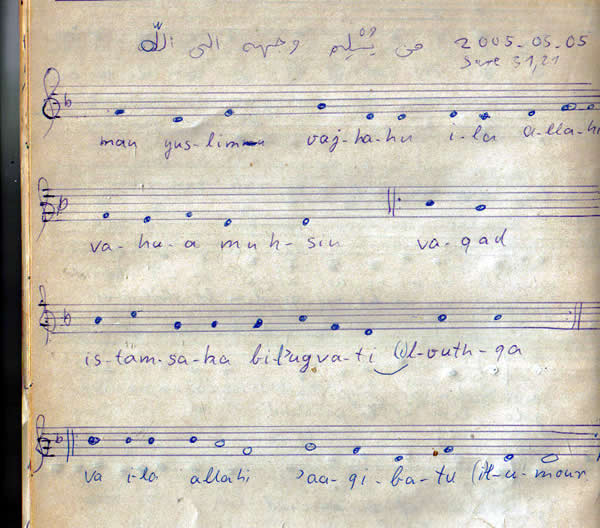 من يُسْلِم وجهه الى الله 2005-05-05
Sure 31,21
man yus-limu vaj-ha-hu i-la a-lla-hi
va-hu-a muh-sin va-qad
is-tam-sa-ka bil'ugva-ti (u)l-outh-qa
va i-la allahi 'aa-qi-ba-tu (il-u-mour